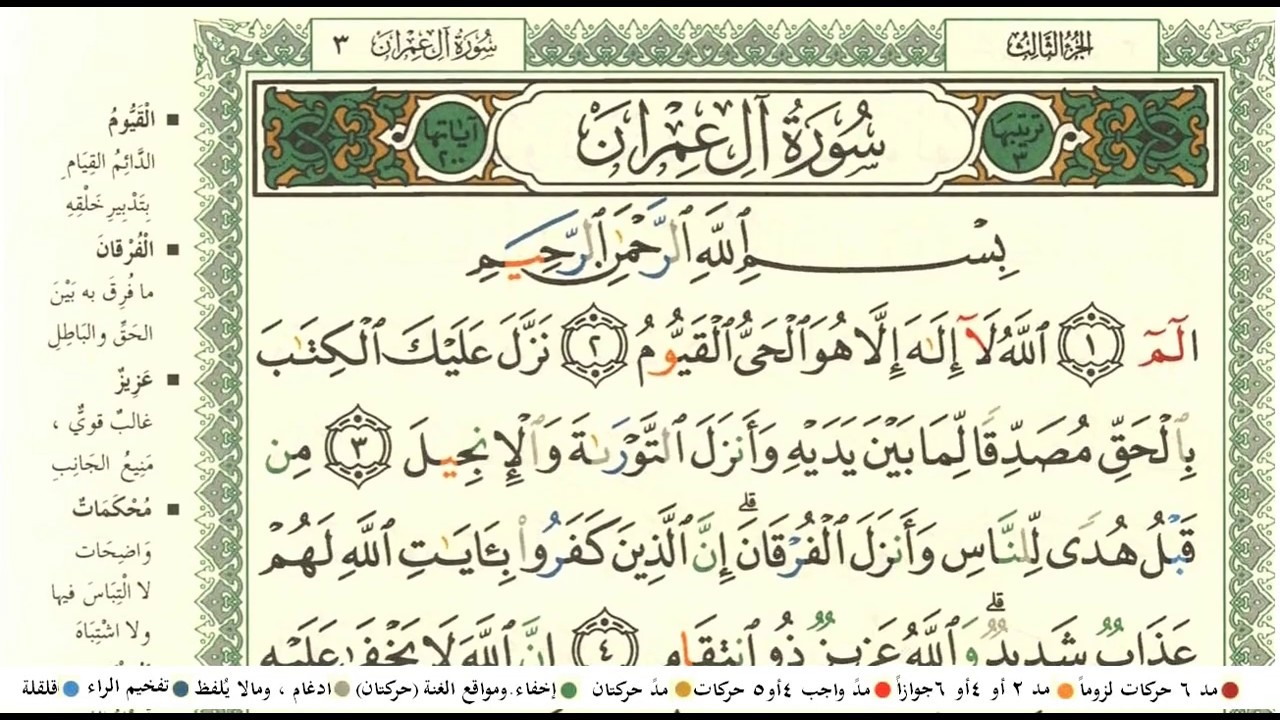 الجزء الثالث
سورة آل عمران ٣
ترتيبها ٣
سُورَةُ آلِ عِمْرَانَ
آياتها ٢٠٠
بِسْمِ ٱللَّهِ ٱلرَّحْمَٰنِ ٱلرَّحِيمِ
الٓمٓ ١ ٱللَّهُ لَآ إِلَٰهَ إِلَّا هُوَ ٱلْحَىُّ ٱلْقَيُّومُ ٢ نَزَّلَ عَلَيْكَ ٱلْكِتَٰبَ
بِٱلْحَقِّ مُصَدِّقًا لِّمَا بَيْنَ يَدَيْهِ وَأَنزَلَ ٱلتَّوْرَىٰةَ وَٱلْإِنجِيلَ ٣ مِن
قَبْلُ هُدًى لِّلنَّاسِ وَأَنزَلَ ٱلْفُرْقَانَ ۗ إِنَّ ٱلَّذِينَ كَفَرُوا۟ بِـَٔايَٰتِ ٱللَّهِ لَهُمْ
عَذَابٌ شَدِيدٌ ۗ وَٱللَّهُ عَزِيزٌ ذُو ٱنتِقَامٍ ٤ إِنَّ ٱللَّهَ لَا يَخْفَىٰ عَلَيْهِ
■ الْقَيُّومُ
الدَّائِمُ القِيَامِ
بِتَدْبِيرِ خَلْقِهِ
■ الْفُرْقَانَ
ما فُرِقَ به بَيْنَ
الحَقِّ والبَاطِلِ
■ عَزِيزٌ
غالبٌ قويٌّ ،
مَنِيعُ الجَانِبِ
■ مُحْكَمَاتٌ
وَاضِحَات
لا الْتِبَاسَ فيها
ولا اشْتِبَاهَ
مد ٦ حركات لزوماً مد ٢ أو ٤ أو ٦ جوازاً مدّ واجب ٤ أو ٥ حركات مدّ حركتان إخفاء، ومواقع الغنة (حركتان) ادغام ، ومالا يُلفظ تفخيم الراء قلقلة